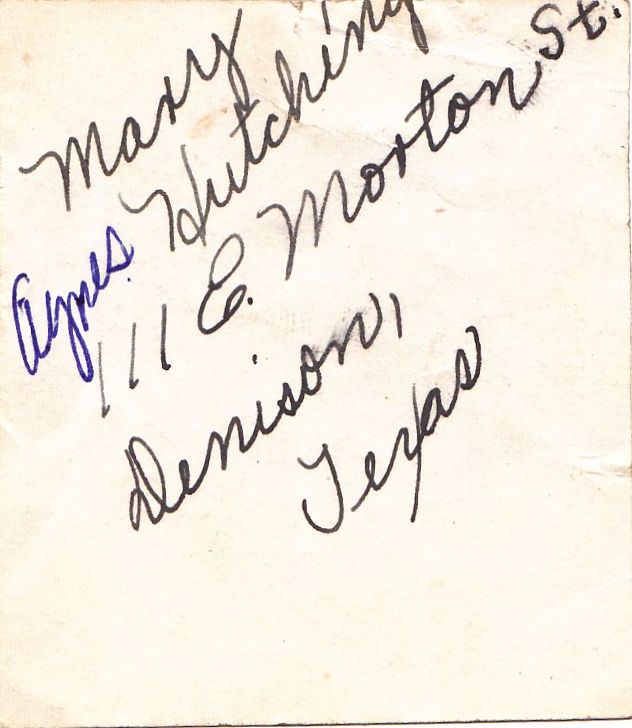 Mary
Agnes Hutching
111 E. Morton St.
Denison,
Texas